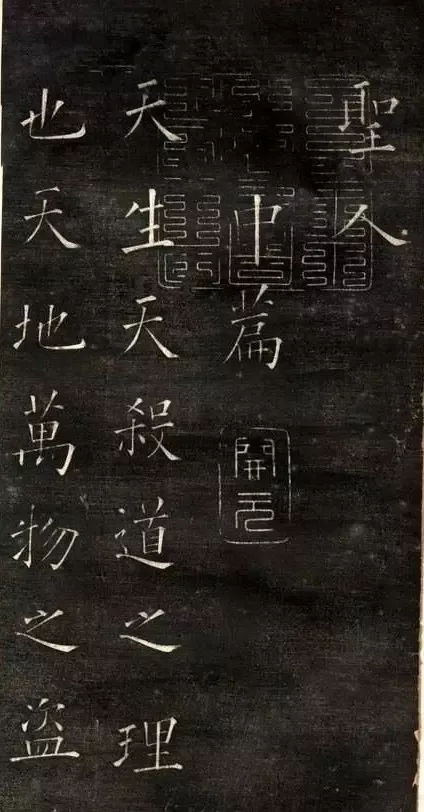 聖人
中篇
開元
天生天殺道之理
也天地萬物之盜